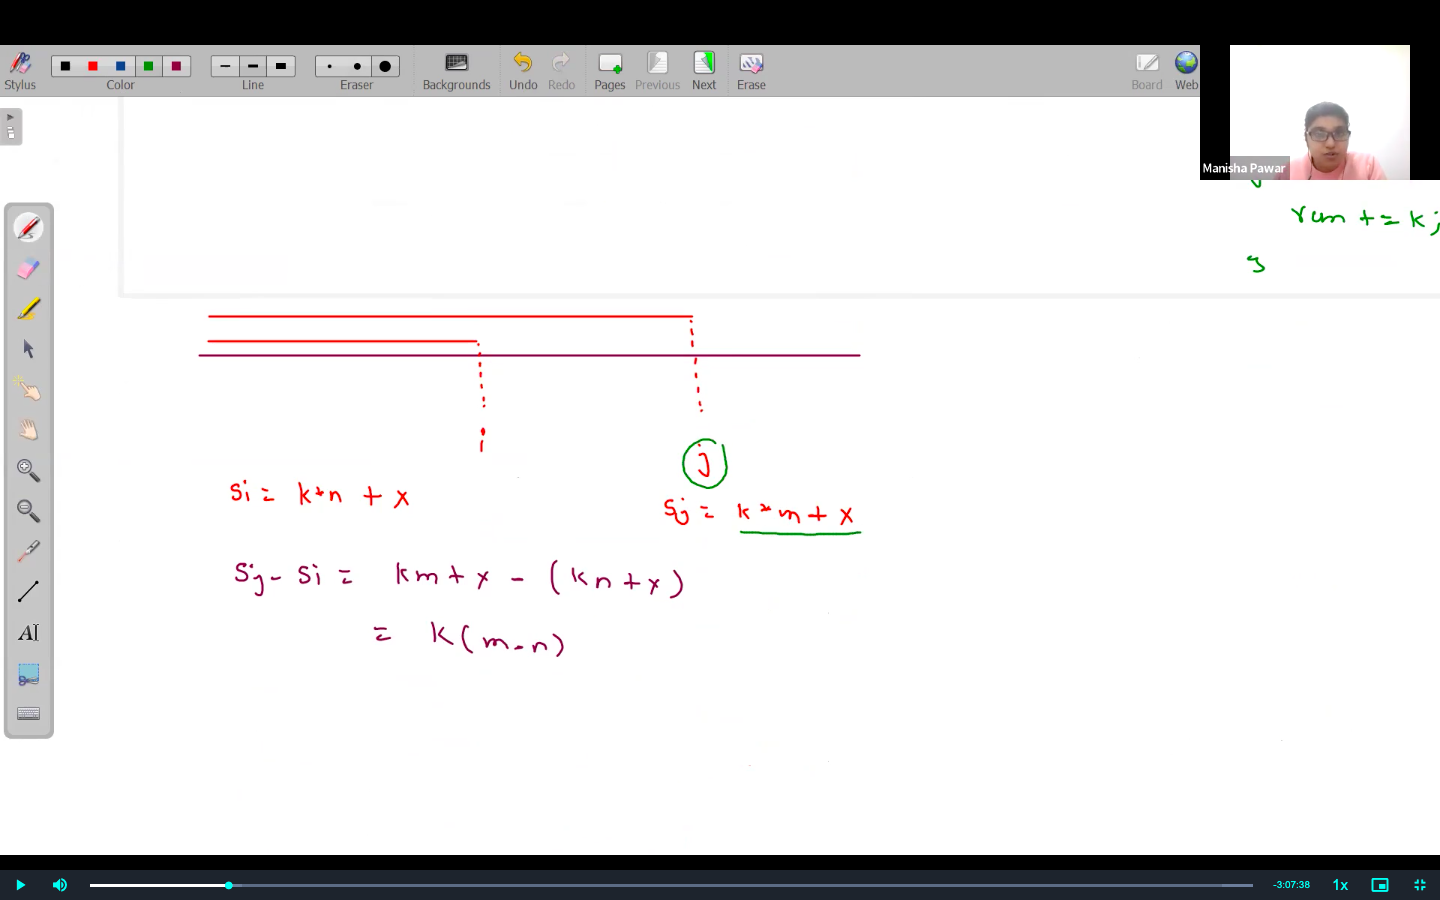 Stylus
Color
Line
Eraser
Backgrounds
Undo
Redo
Pages
Previous
Next
Erase
Board
Web
Manisha Pawar
rem += k;
}
i
j
Si = k*n + x
Sj = k*m + x
Sj - Si = km + x - (kn + x)
= k(m-n)
AI
-3:07:38
1x